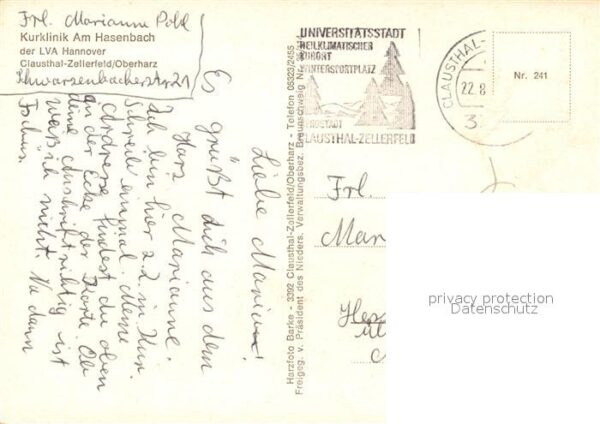 Frl. Marianne Pohl
Kurklinik Am Hasenbach
der LVA Hannover
Clausthal-Zellerfeld/Oberharz
Schwarzenbacherstr 21
Liebe Marion!
Es grüßt dich aus dem
Harz Marianne.
Ich bin hier z.Z. in Kur.
Schreib einmal. Meine
Adresse findest du oben
an der Ecke der Karte. Ob
deine Anschrift richtig ist
weiß ich nicht. Na dann
Tschüs.
Harzfoto Barke - 3392 Clausthal-Zellerfeld/Oberharz - Telefon 05323/2455
Freigeg. v. Präsident des Nieders. Verwaltungsbez. Braunschweig Nr.
UNIVERSITÄTSSTADT
HEILKLIMATISCHER
KURORT
WINTERSPORTPLATZ
BERGSTADT
CLAUSTHAL-ZELLERFELD
CLAUSTHAL-
22.8
3
Nr. 241
Frl.
Mar
Hes
privacy protection
Datenschutz